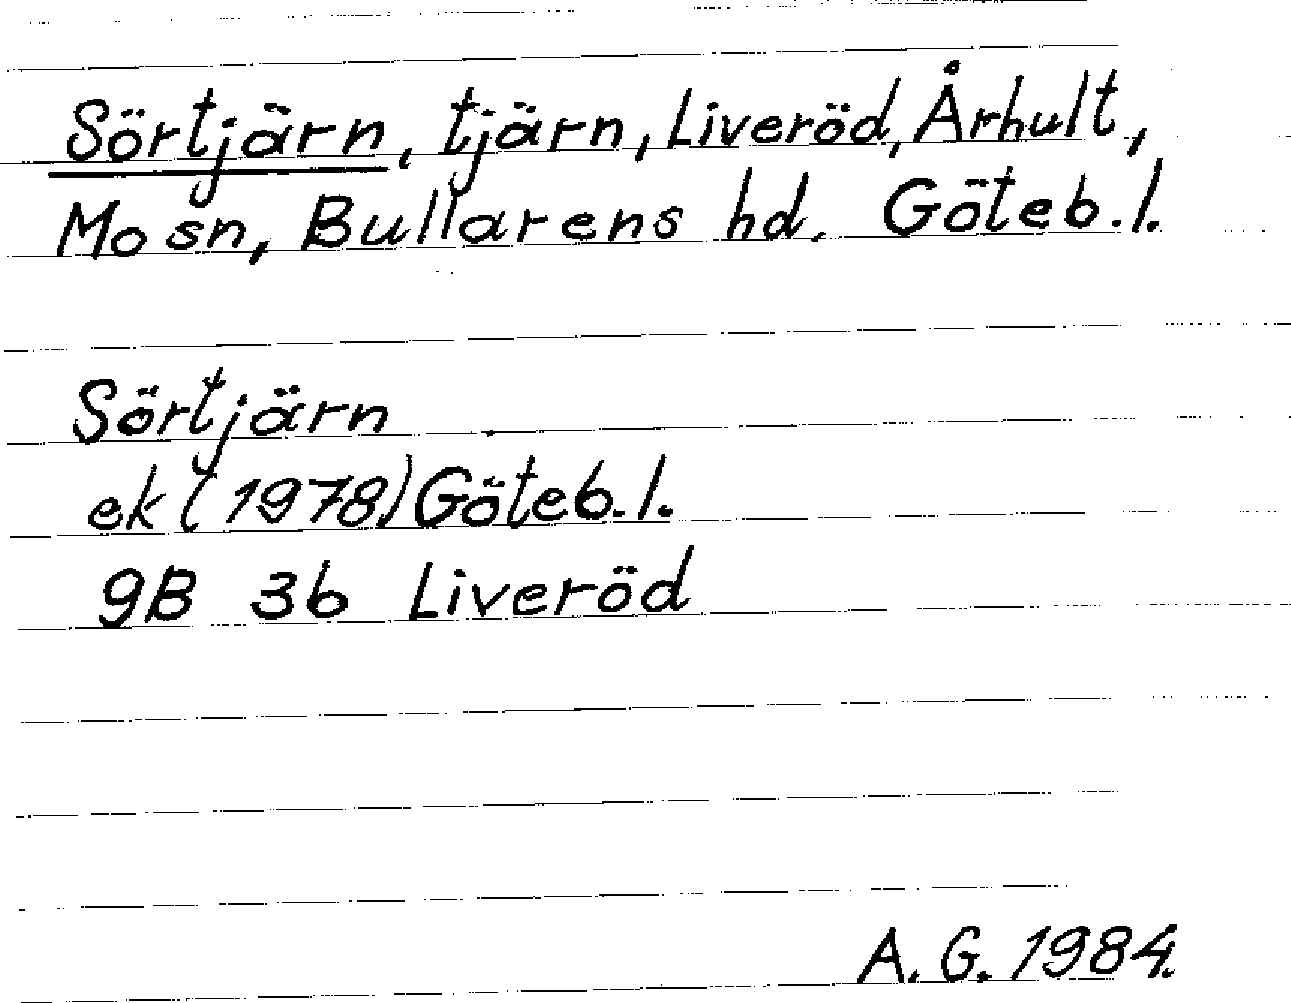 Sörtjärn, tjärn, Liveröd, Århult,
Mo sn, Bullarens hd. Göteb. l.
Sörtjärn
ek (1978) Göteb. l.
9B 3b Liveröd
A. G. 1984.